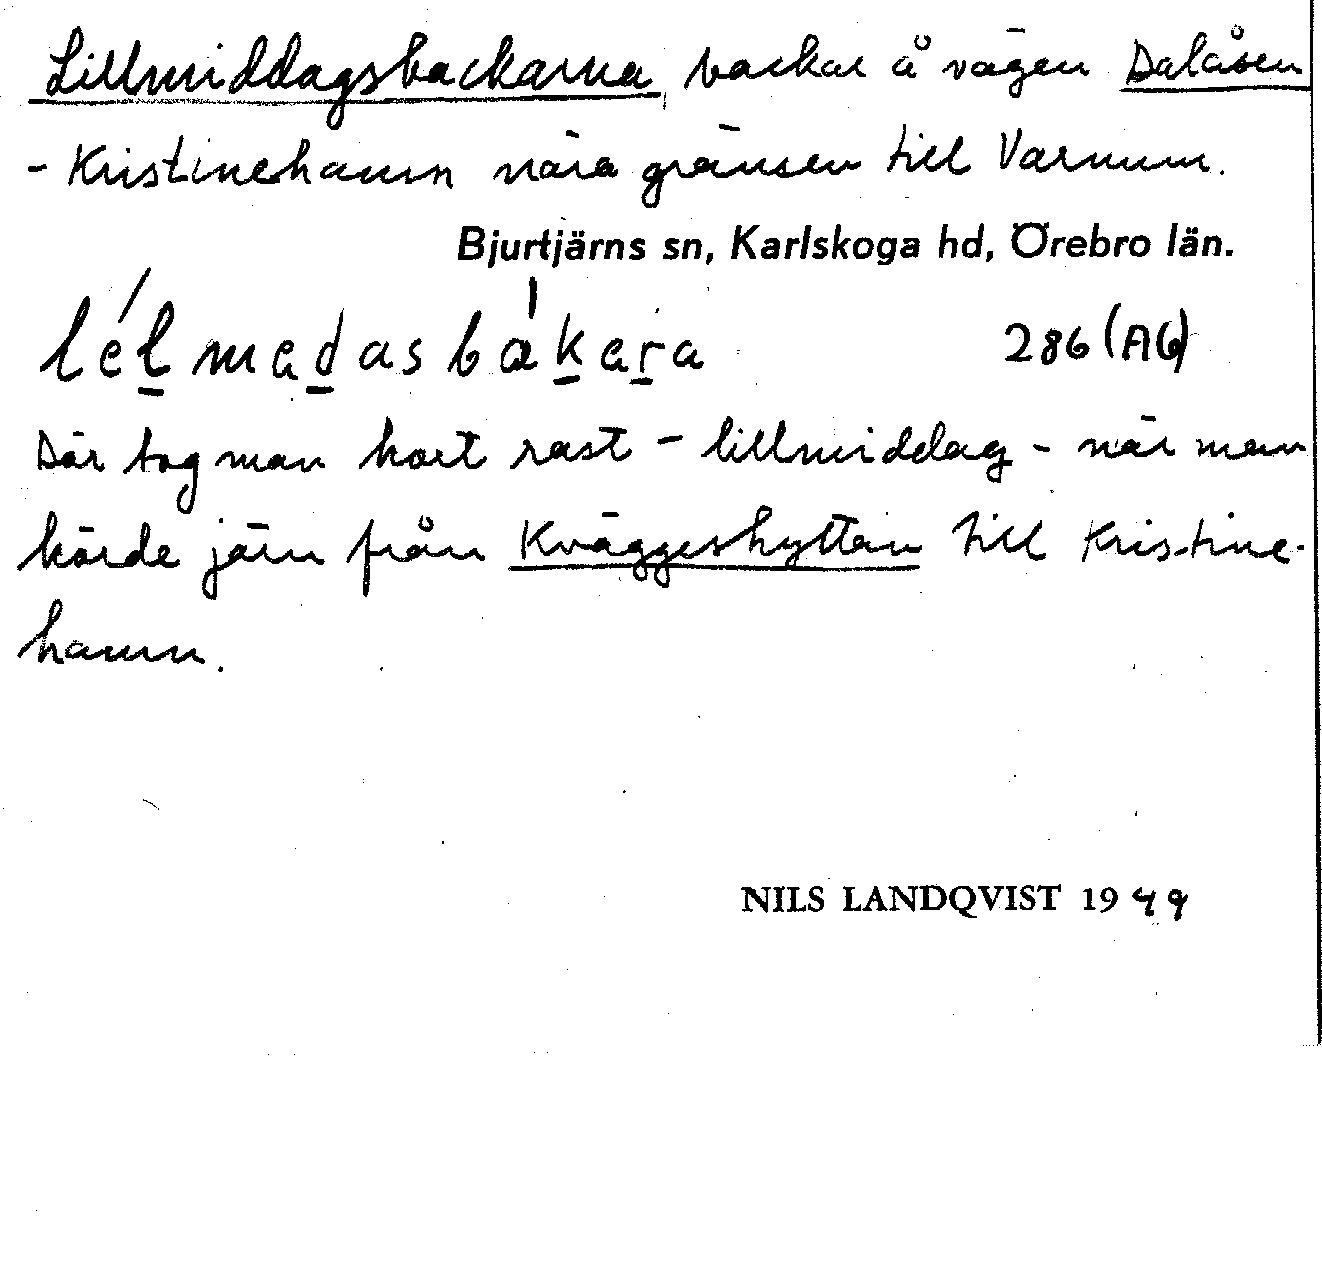 Lillmiddagsbackarna, backar å vägen Dalåsen
- Kristinehamn nära gränsen till Varnum.
Bjurtjärns sn, Karlskoga hd, Örebro län.
lélmedasbákera 286 (AG)
Där tog man kort rast - lillmiddag - när man
körde järn från Kväggeshyttan till Kristine-
hamn.
NILS LANDQVIST 1949